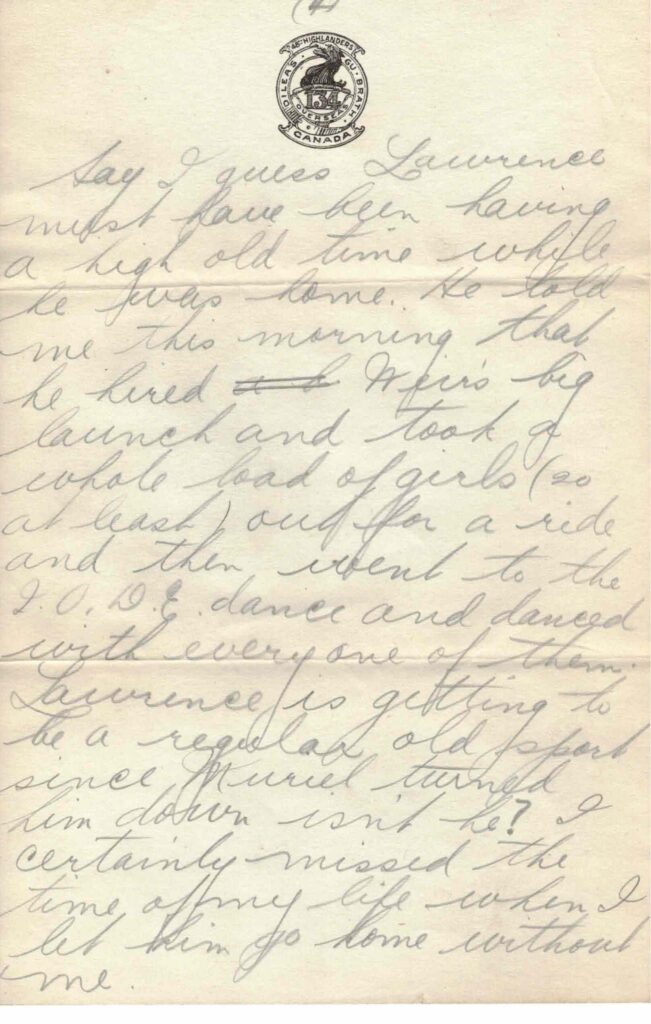 (4)
48TH HIGHLANDERS
DILEAS GU BRATH
134
OVERSEAS
CANADA
Say I guess Lawrence
must have been having
a high old time while
he was home. He told
me this morning that
he hired Weir's big
launch and took a
whole load of girls (20
at least) out for a ride
and then went to the
I.O.D.E. dance and danced
with every one of them.
Lawrence is getting to
be a regular old sport
since Muriel turned
him down isn't he? I
certainly missed the
time of my life when I
let him go home without
me.